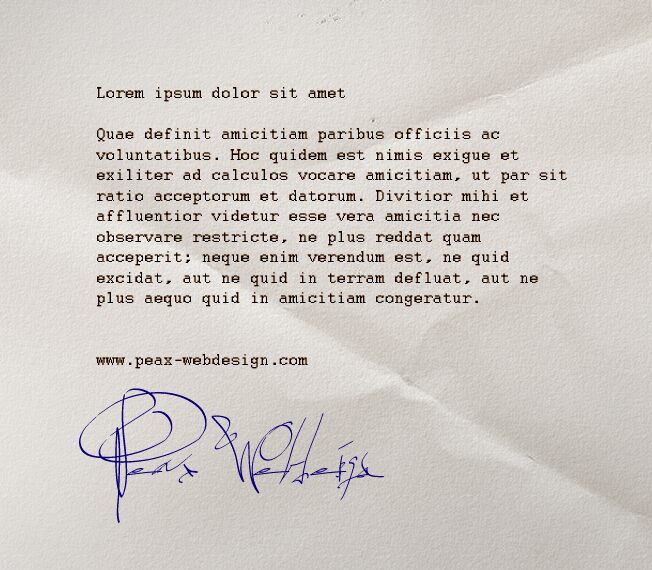 Lorem ipsum dolor sit amet
Quae definit amicitiam paribus officiis ac
voluntatibus. Hoc quidem est nimis exigue et
exiliter ad calculos vocare amicitiam, ut par sit
ratio acceptorum et datorum. Divitior mihi et
affluentior videtur esse vera amicitia nec
observare restricte, ne plus reddat quam
acceperit; neque enim verendum est, ne quid
excidat, aut ne quid in terram defluat, aut ne
plus aequo quid in amicitiam congeratur.
www.peax-webdesign.com
Peax Webdesign